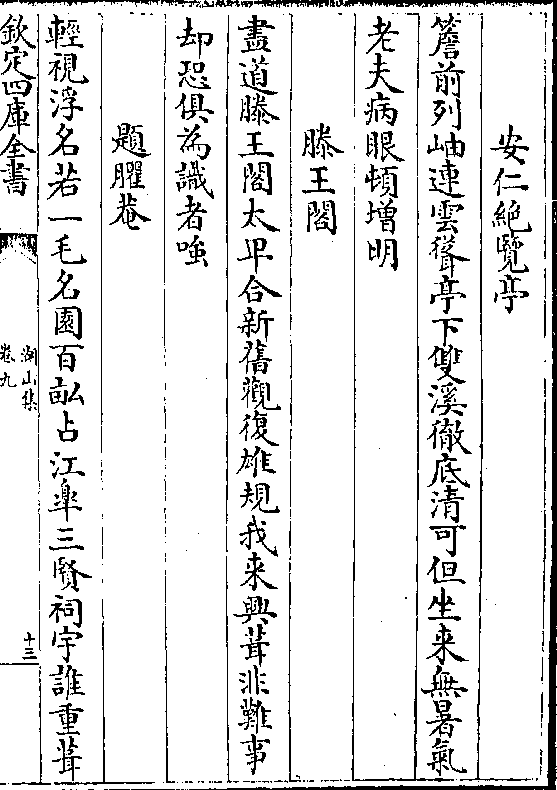 安仁絶覽亭
簷前列岫連雲聳亭下雙溪徹底清可但坐来無暑氣
老夫病眼頓増明
滕王閣
盡道滕王閣太卑合新舊觀復雄規我来興葺非難事
却恐俱為識者嗤
題臞菴
輕視浮名若一毛名園百畝占江臯三賢祠宇誰重葺
欽定四庫全書
湖山集
卷九
十三